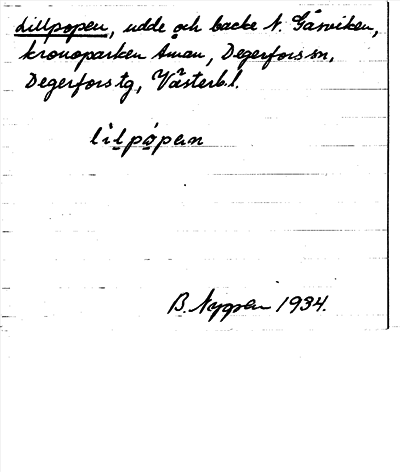 Lillpopen, udde och backe N. Gåsviken,
kronoparken Åman, Degerfors sn,
Degerfors tg, Västerb.l.
lilpọ́pẹn
B. Nygren 1934.